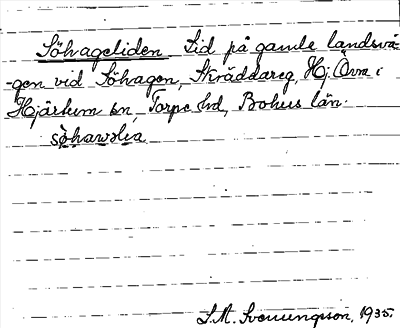 Söhageliden Lid på gamle landsvä-
-gen vid Söhagen, Skräddareg, Hj. Övra i
Hjärtum sn, Torpe hd, Bohus län.
söhawslia
S.M. Svenungsson, 1935.